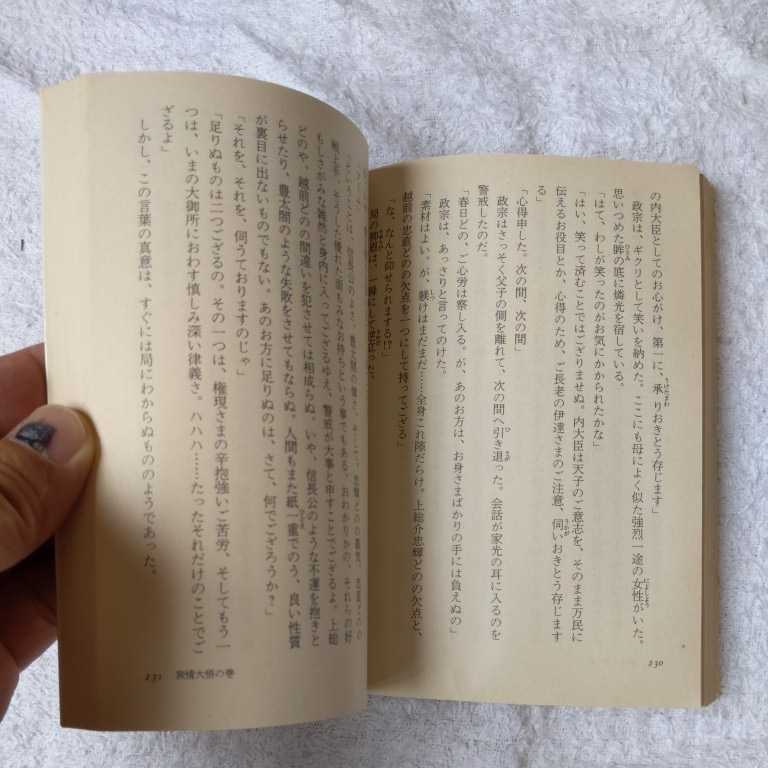 の内大臣としてのお心がけ、第一に、承りおきとう存じます」
政宗は、ギクリとして笑いを納めた。ここにも母によく似た強烈一途の女性がいた。
思いつめた眸の底に燐光を宿している。
「はて、わしが笑ったのがお気にかかられたかな」
「はい、笑って済むことではござりませぬ。内大臣は天子のご意志を、そのまま万民に
伝えるお役目とか、心得のため、ご長老の伊達さまのご注意、伺いおきとう存じます
る」
「心得申した。次の間、次の間」
政宗はさっそく父子の側を離れて、次の間へ引き退った。会話が家光の耳に入るのを
警戒したのだ。
「春日どの、ご心労は察し入る。が、あのお方は、お身さまばかりの手には負えぬの」
政宗は、あっさりと言ってのけた。
「素材はよい。が、躾けはまだまだ……全身これ隙だらけ。上総介忠輝どのの欠点と、
越前の忠直どのの欠点を一つにして持ってござる」
「な、なんと仰せられまする!?」
局の
は、一瞬にして
った。
230
もしさがみな雑然と身内に入ってござるゆえ、警戒が大事と申すことでござるよ。上総
どのや、越前どのの間違いを犯させては相成らぬ。いや、信長公のような不運を抱きと
らせたり、豊太閤のような失敗をさせてもならぬ。人間もまた紙一重でのう、良い性質
が裏目に出ないものでもない。あのお方に足りぬのは、さて、何でござろうか？」
「それを、それを、伺うておりますのじゃ」
「足りぬものは二つござるの。その一つは、権現さまの辛抱強いご苦労、そしてもう一
つは、いまの大御所におわす慎しみ深い律義さ。ハハハ……たったそれだけのことでご
ざるよ」
しかし、この言葉の真意は、すぐには局にわからぬもののようであった。
231
大悟の巻